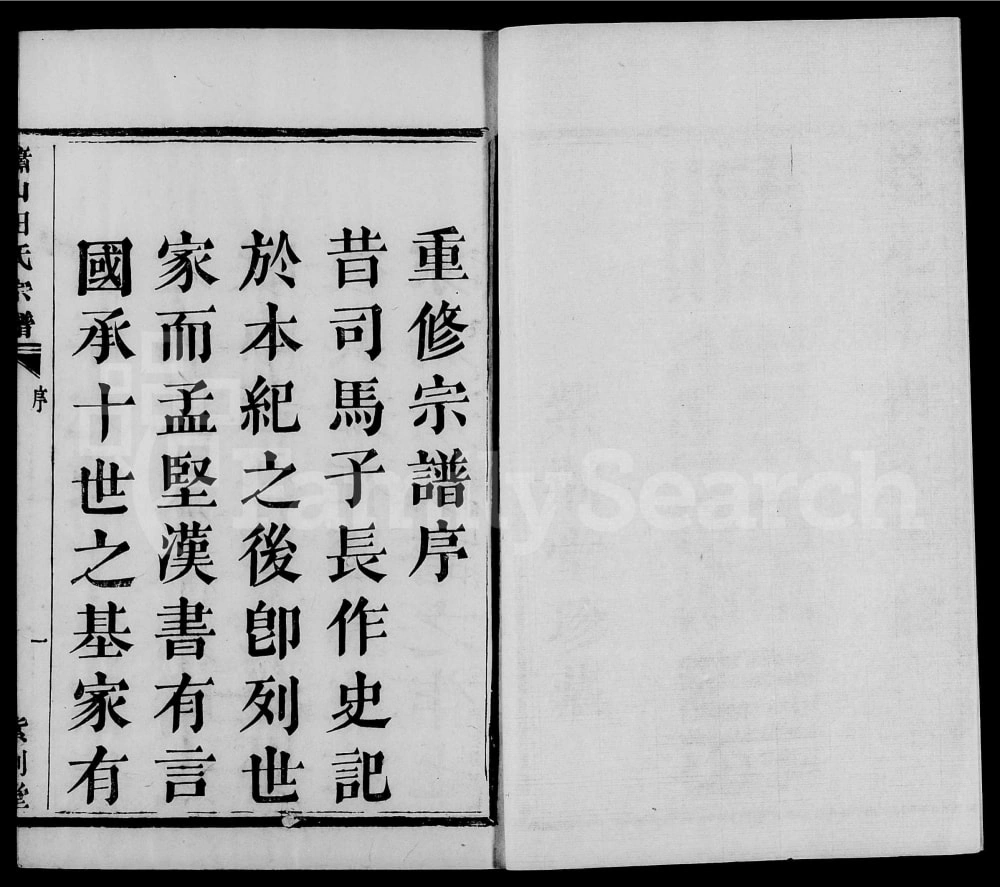 重修宗譜序
昔司馬子長作史記
於本紀之後卽列世
家而孟堅漢書有言
國承十世之基家有
蕭山田氏宗譜
序
一
紫荊堂
FamilySearch